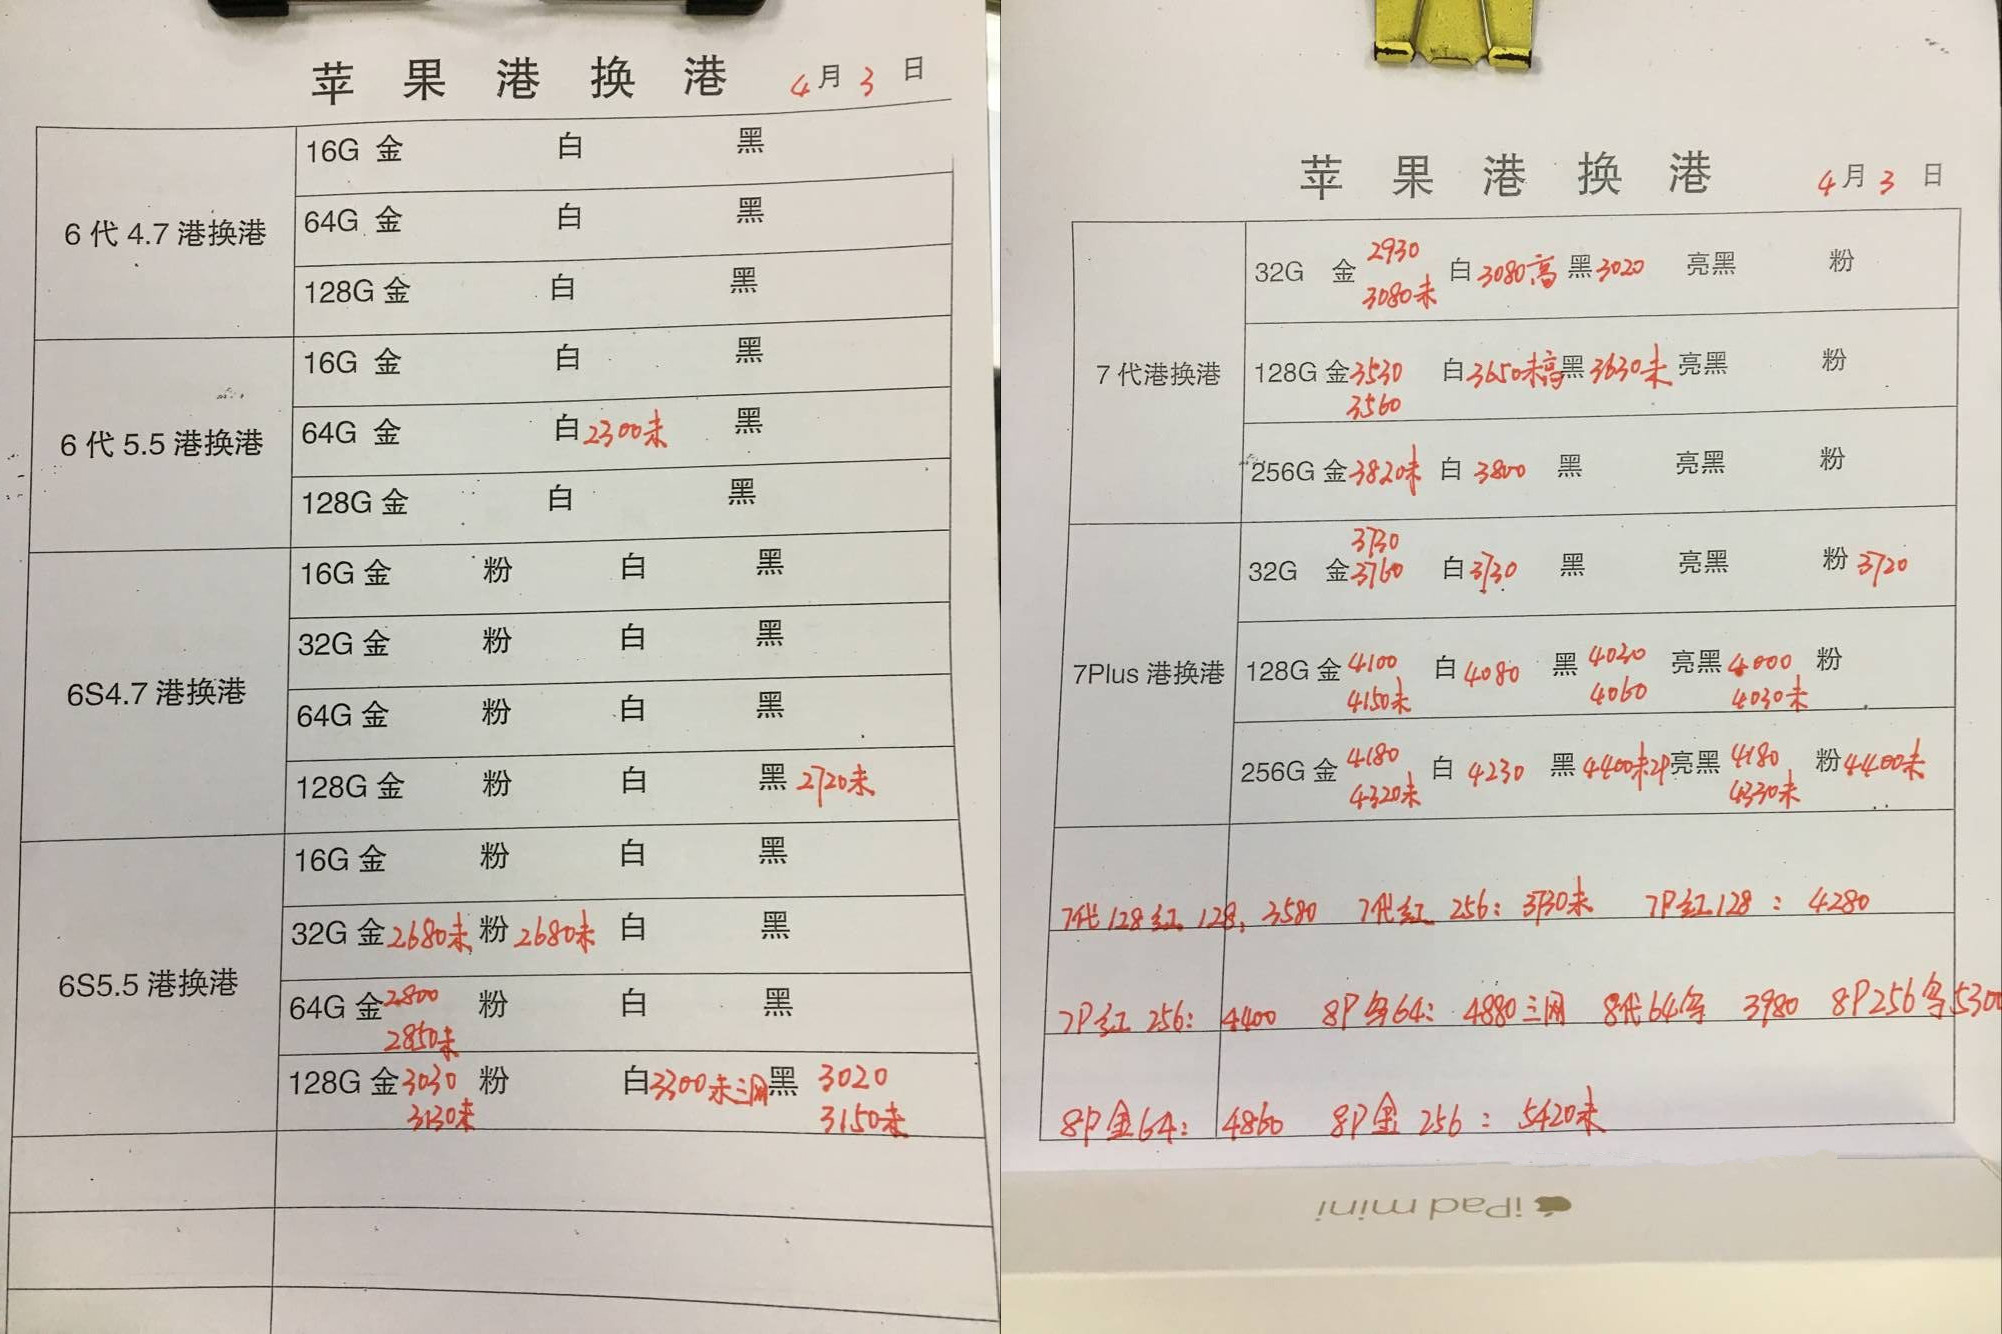 苹果港换港 4月3日
6代4.7港换港
16G 金 白 黑
64G 金 白 黑
128G 金 白 黑
6代5.5港换港
16G 金 白 黑
64G 金 白2300未 黑
128G 金 白 黑
6S4.7港换港
16G 金 粉 白 黑
32G 金 粉 白 黑
64G 金 粉 白 黑
128G 金 粉 白 黑2720未
6S5.5港换港
16G 金 粉 白 黑
32G 金2680未 粉2680未 白 黑
64G 金2800 粉 白 黑
2850未
128G 金3030 粉 白3300未三网 黑 3020
3130未 3150未
苹果港换港 4月3日
7代港换港
2930
32G 金 白3080高 黑3020 亮黑 粉
3080未
128G 金3530 白3650未高 黑3630未 亮黑 粉
3560
256G 金3820未 白3800 黑 亮黑 粉
7Plus港换港
3730
32G 金3760 白3730 黑 亮黑 粉3720
128G 金4100 白4080 黑4020 亮黑4000 粉
4150未 4060 4030未
256G 金4180 白4230 黑4400未2P 亮黑4180 粉4400未
4320未 4330未
7代128红 128: 3580 7代红 256: 3730未 7P红128: 4280
7P红 256: 4400 8P 64: 4880三网 8代64 3980 8P256 5300
8P金64: 4860 8P金 256: 5420未
iPad mini